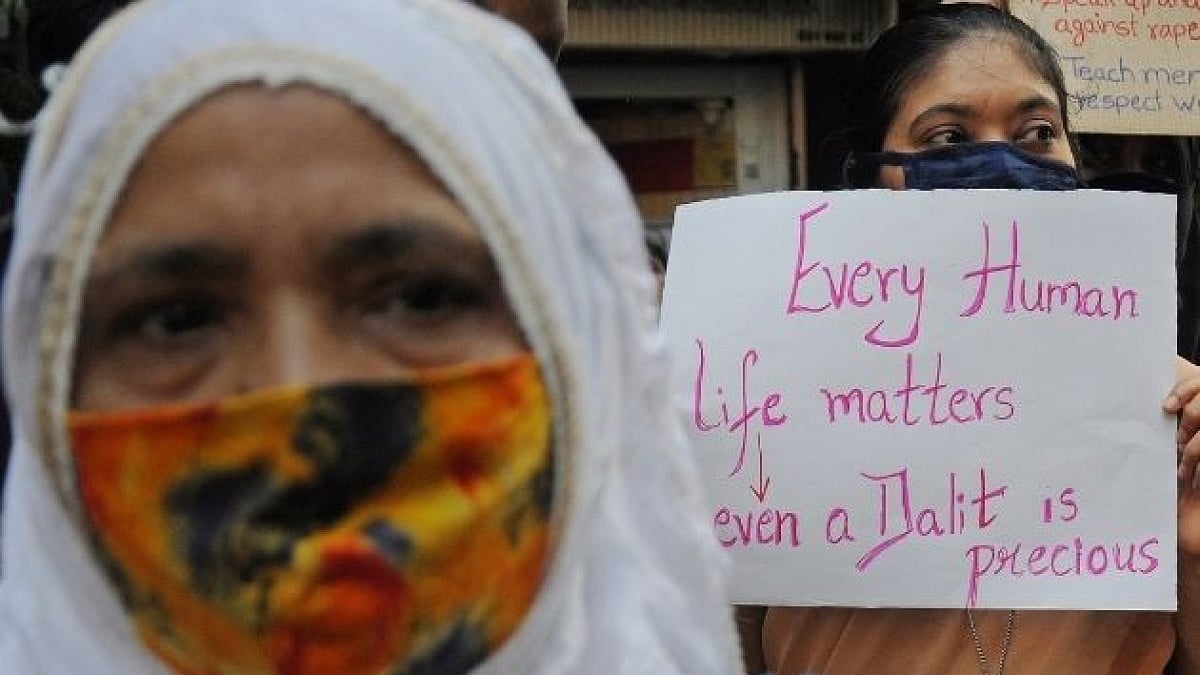 Every Human
life matters
even a Dalit is
precious
against rape
Teach men
respect